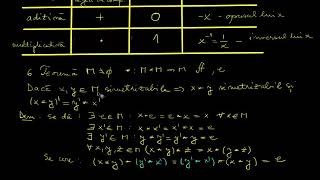 aditivă + 0 -x - opusul lui x
multiplicativă · 1 x⁻¹ = 1/x - inversul lui x
6 Teoremă M ≠ ∅ * : M×M → M A, e
Dacă x, y ∈ M simetrizabile ⇒ x * y simetrizabil și
(x * y)' = y' * x'
Dem: Se dă: ∃ e ∈ M : x * e = e * x = x ∀ x ∈ M
∃ x' ∈ M : x * x' = x' * x = e
∃ y' ∈ M : y * y' = y' * y = e
∀ x, y, z ∈ M (x * y) * z = x * (y * z)
Se cere: (x * y) * (y' * x') = (y' * x') * (x * y) = e